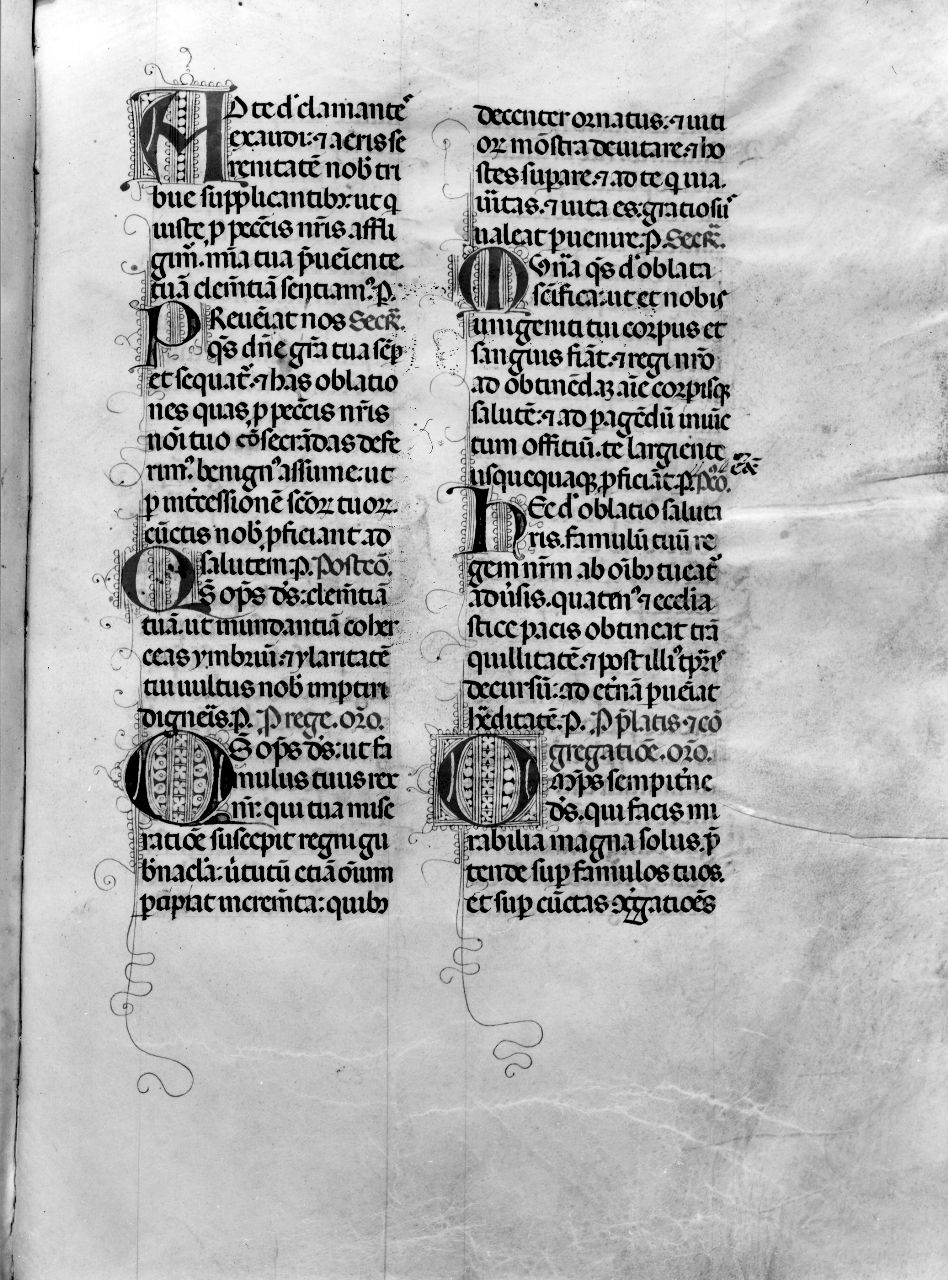 AD te dn̄e clamantes
exaudi: ⁊ aeris se
renitatē nob̄ tri
bue supplicantibꝫ: ut q
iuste ꝓ pecc̄is nr̄is affli
gim̄. mīa tua p̄ueniente.
tuā clem̄tiā sentiam᷒. P.
PReueniat nos Secr̄.
q̄s dn̄e gr̄a tua semꝑ
et sequat̄. ⁊ has oblatio
nes quas ꝓ pecc̄is nr̄is
noī tuo cōsecrādas defe
rim᷒. benign᷒ assume: ut
ꝑ int̄cessionē scōꝝ tuoꝝ.
cūctis nob̄ ꝓficiant ad
salutem. P. Postcō.
QS om̄ps d̄s: clem̄tiā
tuā. ut inundantiā coher
ceas ymbriū. ⁊ ylaritatē
tui uultus nob̄ imptiri
digneris. P. P rege. or̄o.
QS om̄ps d̄s: ut fa
mulus tuus rex
nr̄. qui tua mise
ratiōe suscepit regni gu
b̄nacla: uirtutū etiā oīum
ꝑcipiat increm̄ta: quibꝫ
decenter ornatus: ⁊ uiti
oꝝ mōstra deuitare. ⁊ ho
stes suꝑare. ⁊ ad te q uia.
uītas. ⁊ uita es: gratiosus
ualeat ꝑuenire. P. Secr̄.
MUn̄a q̄s dn̄e oblata
scīfica: ut et nobis
unigeniti tui corpus et
sanguis fiāt. ⁊ regi nr̄o
ad obtinēdaꝫ aīe corpisqꝫ
salutē: ⁊ ad pagēdū iniūc
tum officiū. te largiente
usquequaqꝫ ꝓficiāt. P. Pco.
HEc dn̄e oblatio saluta
ris. famulū tuū re
gem nr̄m ab oībꝫ tueat̄
adūsis. quatin᷒ ⁊ ecclia
stice pacis obtineat trā
quillitatē. ⁊ post illi᷒ tp̄ris
decursū: ad et̄nā ꝑueniat
hēditatē. P. P p̄latis ⁊ cō
gregatiōe. or̄o.
OMp̄s sempit̄ne
d̄s. qui facis mi
rabilia magna solus. p̄
tende suꝑ famulos tuos.
et suꝑ cūctas ꝯḡgatiōes